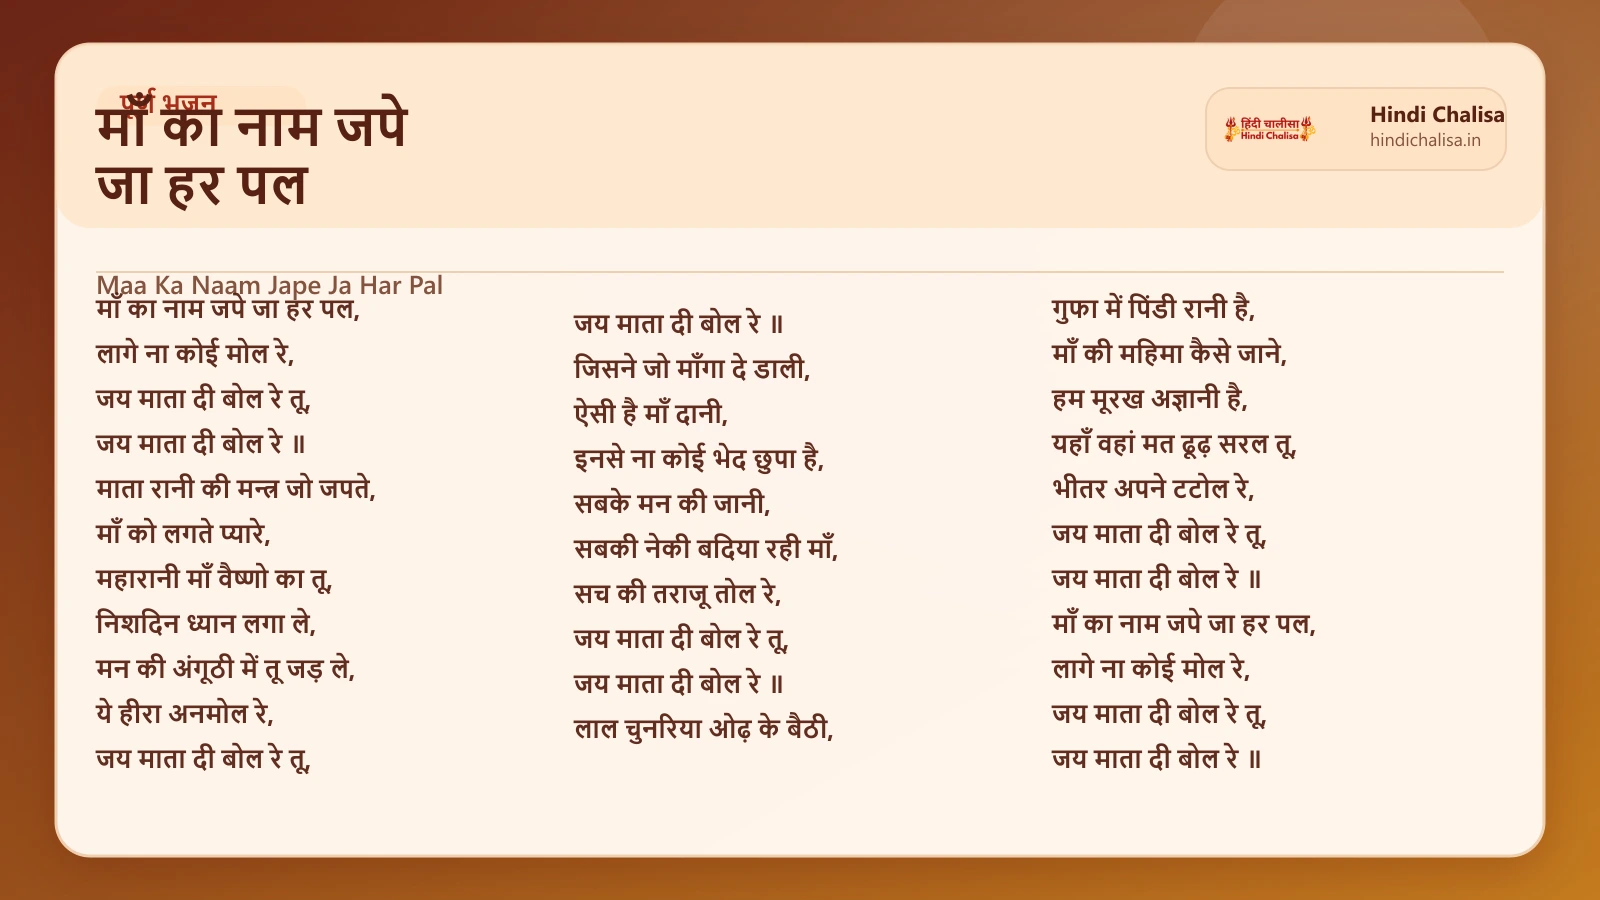 पूर्ण भजन
माँ का नाम जपे
जा हर पल
हिंदी चालीसा
Hindi Chalisa
Hindi Chalisa
hindichalisa.in
Maa Ka Naam Jape Ja Har Pal
माँ का नाम जपे जा हर पल,
लागे ना कोई मोल रे,
जय माता दी बोल रे तू,
जय माता दी बोल रे ॥
माता रानी की मन्त्र जो जपते,
माँ को लगते प्यारे,
महारानी माँ वैष्णो का तू,
निशदिन ध्यान लगा ले,
मन की अंगूठी में तू जड़ ले,
ये हीरा अनमोल रे,
जय माता दी बोल रे तू,
जय माता दी बोल रे ॥
जिसने जो माँगा दे डाली,
ऐसी है माँ दानी,
इनसे ना कोई भेद छुपा है,
सबके मन की जानी,
सबकी नेकी बदिया रही माँ,
सच की तराजू तोल रे,
जय माता दी बोल रे तू,
जय माता दी बोल रे ॥
लाल चुनरिया ओढ़ के बैठी,
गुफा में पिंडी रानी है,
माँ की महिमा कैसे जाने,
हम मूरख अज्ञानी है,
यहाँ वहां मत ढूढ़ सरल तू,
भीतर अपने टटोल रे,
जय माता दी बोल रे तू,
जय माता दी बोल रे ॥
माँ का नाम जपे जा हर पल,
लागे ना कोई मोल रे,
जय माता दी बोल रे तू,
जय माता दी बोल रे ॥